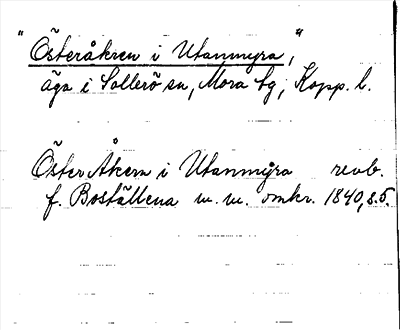 "Österåkren i Utanmyra,"
äga i Sollerö sn, Mora tg, Kopp. l.
Öster Åkern i Utanmyra revb.
f. Boställena m. m. omkr. 1840, s. 5.